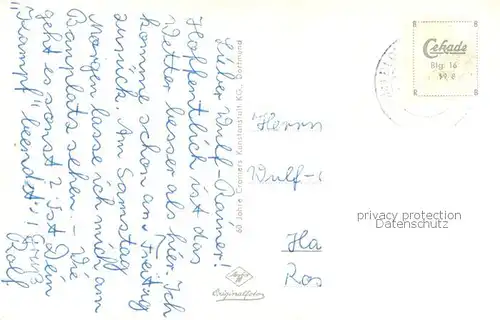 Lieber Wulf-Rainer!
Hoffentlich ist das
Wetter besser als hier. Ich
komme schon am Freitag
zurück. Am Samstag
Morgen lasse ich mich am
Bauplatz sehen. – Wie
geht es sonst? Ist Dein
"Krampf" beendet?!
Gruß
Rolf
60 Jahre Cramers Kunstanstalt KG., Dortmund
Agfa
Originalfoto
B B
Cekade
Blg. 16
R B
Herrn
Wulf-
privacy protection
Datenschutz
Ha
Ros